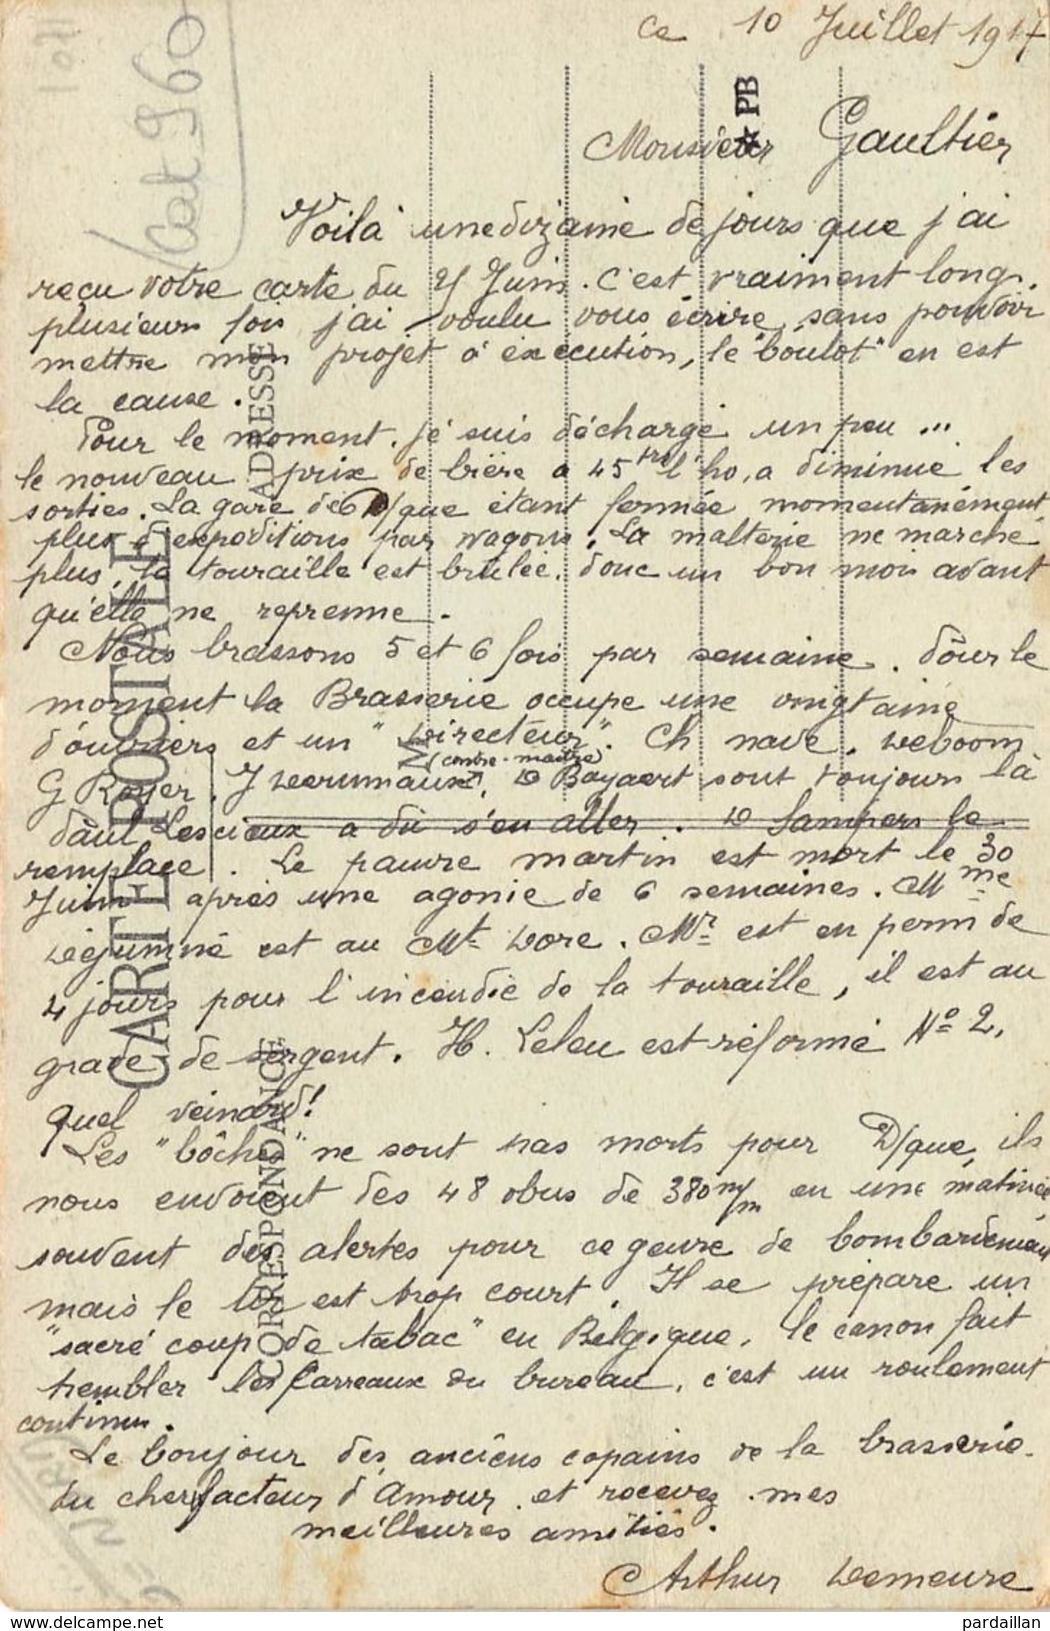 ce 10 Juillet 1917
Monsieur Gaultier
Voilà une dizaine de jours que j'ai
reçu votre carte du 25 Juin. C'est vraiment long.
plusieurs fois j'ai voulu vous écrire, sans pouvoir
mettre mon projet à exécution, le "boulot" en est
la cause.
Pour le moment, je suis déchargé un peu ...
le nouveau prix de bière à 45 frs l'ho, a diminué les
sorties. La gare de D/que étant fermée momentanément,
plus d'expéditions par wagons. La malterie ne marche
plus, la touraille est brûlée, donc un bon mois avant
qu'elle ne reprenne.
Nous brassons 5 et 6 fois par semaine. Pour le
moment la Brasserie occupe une vingtaine
d'ouvriers et un "Directeur". Ch nave. Deboom
(contre-maître)
G Royer, J Dermaux, D Bayaert sont toujours là
Paul Lescieux a dû s'en aller. D Sampers le
remplace. Le pauvre martin est mort le 30
Juin après une agonie de 6 semaines. Mme
Déjumné est au Mt Dore. Mr est en perm de
4 jours pour l'incendie de la touraille, il est au
grade de sergent. H. Leleu est réformé No 2,
quel veinard!
Les "bôches" ne sont pas morts pour D/que, ils
nous envoient des 48 obus de 380 m/m en une matinée
souvent des alertes pour ce genre de bombardement
mais le tir est trop court. Il se prépare un
"sacré coup de tabac" en Belgique, le canon fait
trembler les carreaux du bureau, c'est un roulement
continu.
Le bonjour des anciens copains de la brasserie.
du cher facteur d'Amour, et recevez mes
meilleures amitiés.
Arthur Demeure
★ PB
CARTE POSTALE
CORRESPONDANCE
ADRESSE
M
Kat 960
delcampe.net
pardaillan